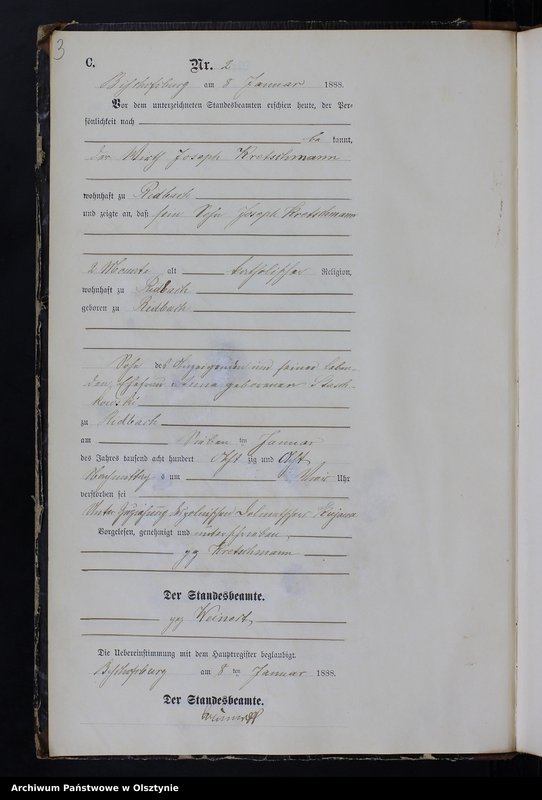 3
C.
Nr. 2
Bischofsburg am 8 Januar 1888.
Vor dem unterzeichneten Standesbeamten erschien heute, der Per-
sönlichkeit nach
be kannt,
der Wirth Joseph Kretschmann
wohnhaft zu Ridbach
und zeigte an, daß sein Sohn Joseph Kretschmann
2 Monate alt katholischer Religion,
wohnhaft zu Ridbach
geboren zu Ridbach
Sohn des Anzeigenden und seiner leben-
den Ehefrau Anna geborenen
zu Ridbach
am sieben ten Januar
des Jahres tausend acht hundert acht zig und acht
Nachmittags um vier Uhr
verstorben sei
Unter Zuziehung
Vorgelesen, genehmigt und unterschrieben
gz Kretschmann
Der Standesbeamte.
gz Weinert
Die Uebereinstimmung mit dem Hauptregister beglaubigt.
Bischofsburg am 8 ten Januar 1888.
Der Standesbeamte.
Weinert
Archiwum Państwowe w Olsztynie